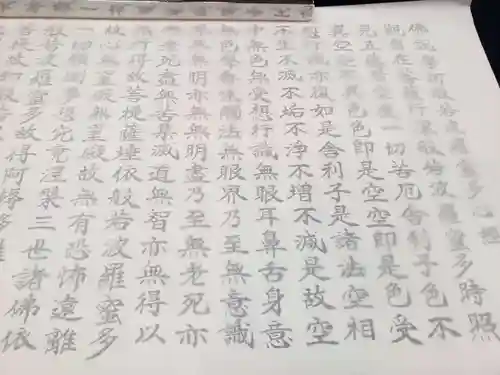 佛說摩訶般若波羅蜜多心經
觀自在菩薩行深般若波羅蜜多時照
見五蘊皆空度一切苦厄舍利子色不
異空空不異色色即是空空即是色受
想行識亦復如是舍利子是諸法空相
不生不滅不垢不淨不增不減是故空
中無色無受想行識無眼耳鼻舌身意
無色聲香味觸法無眼界乃至無意識
界無無明亦無無明盡乃至無老死亦
無老死盡無苦集滅道無智亦無得以
無所得故菩提薩埵依般若波羅蜜多
故心無罣礙無罣礙故無有恐怖遠離
一切顛倒夢想究竟涅槃三世諸佛依
般若波羅蜜多故得阿耨多羅